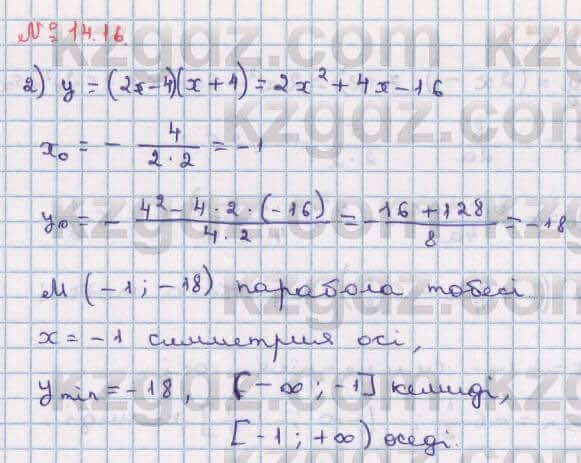 № 14.16.
2) y = (2x-4)(x+4) = 2x² + 4x - 16
x₀ = - 4/(2·2) = -1
y₀ = - (4² - 4·2·(-16))/(4·2) = - (16 + 128)/8 = -18
M (-1; -18) парабола төбесі
x = -1 симметрия осі,
y min = -18, [-∞; -1] кемиді,
[-1; +∞) өседі.